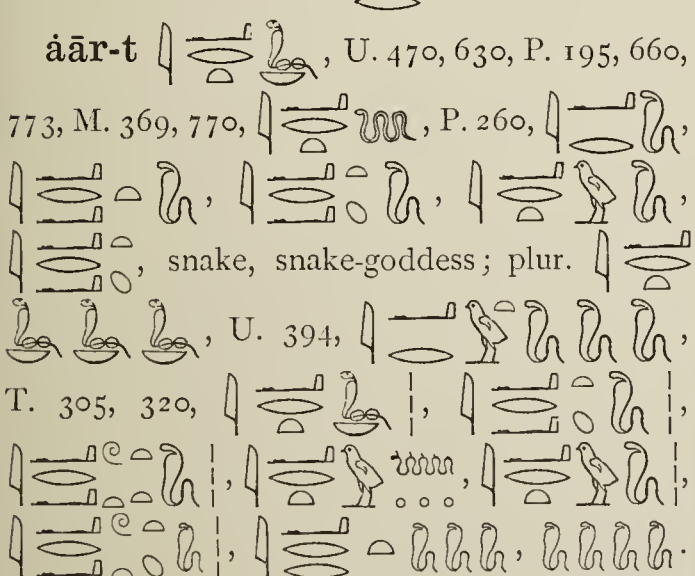 ȧār-t 𓇋𓂝𓂋𓏏𓆘, U. 470, 630, P. 195, 660,
773, M. 369, 770, 𓇋𓂝𓂋𓏏, P. 260, 𓇋𓂝𓂋𓆗,
𓇋𓂝𓂋𓂝𓏏𓆗, 𓇋𓂝𓂋𓂝𓏏𓆇𓆗, 𓇋𓂝𓂋𓏏𓅱𓆗,
𓇋𓂝𓂋𓂝𓏏𓆇, snake, snake-goddess; plur. 𓇋𓂝𓂋𓏏
𓆘𓆘𓆘, U. 394, 𓇋𓂝𓂋𓅱𓏏𓆗𓆗𓆗,
T. 305, 320, 𓇋𓂝𓂋𓏏𓆘𓏥, 𓇋𓂝𓂋𓂝𓏏𓆇𓆗𓏥,
𓇋𓂝𓂋𓂝𓏲𓏏𓏏𓏏𓆗𓏥, 𓇋𓂝𓂋𓏏𓅱, 𓇋𓂝𓂋𓏏𓅱𓆗𓏥,
𓇋𓂝𓂋𓂝𓏲𓏏𓏏𓆇𓆗𓏥, 𓇋𓂝𓂋𓂝𓏏𓆗𓆗𓆗, 𓆗𓆗𓆗𓆗.